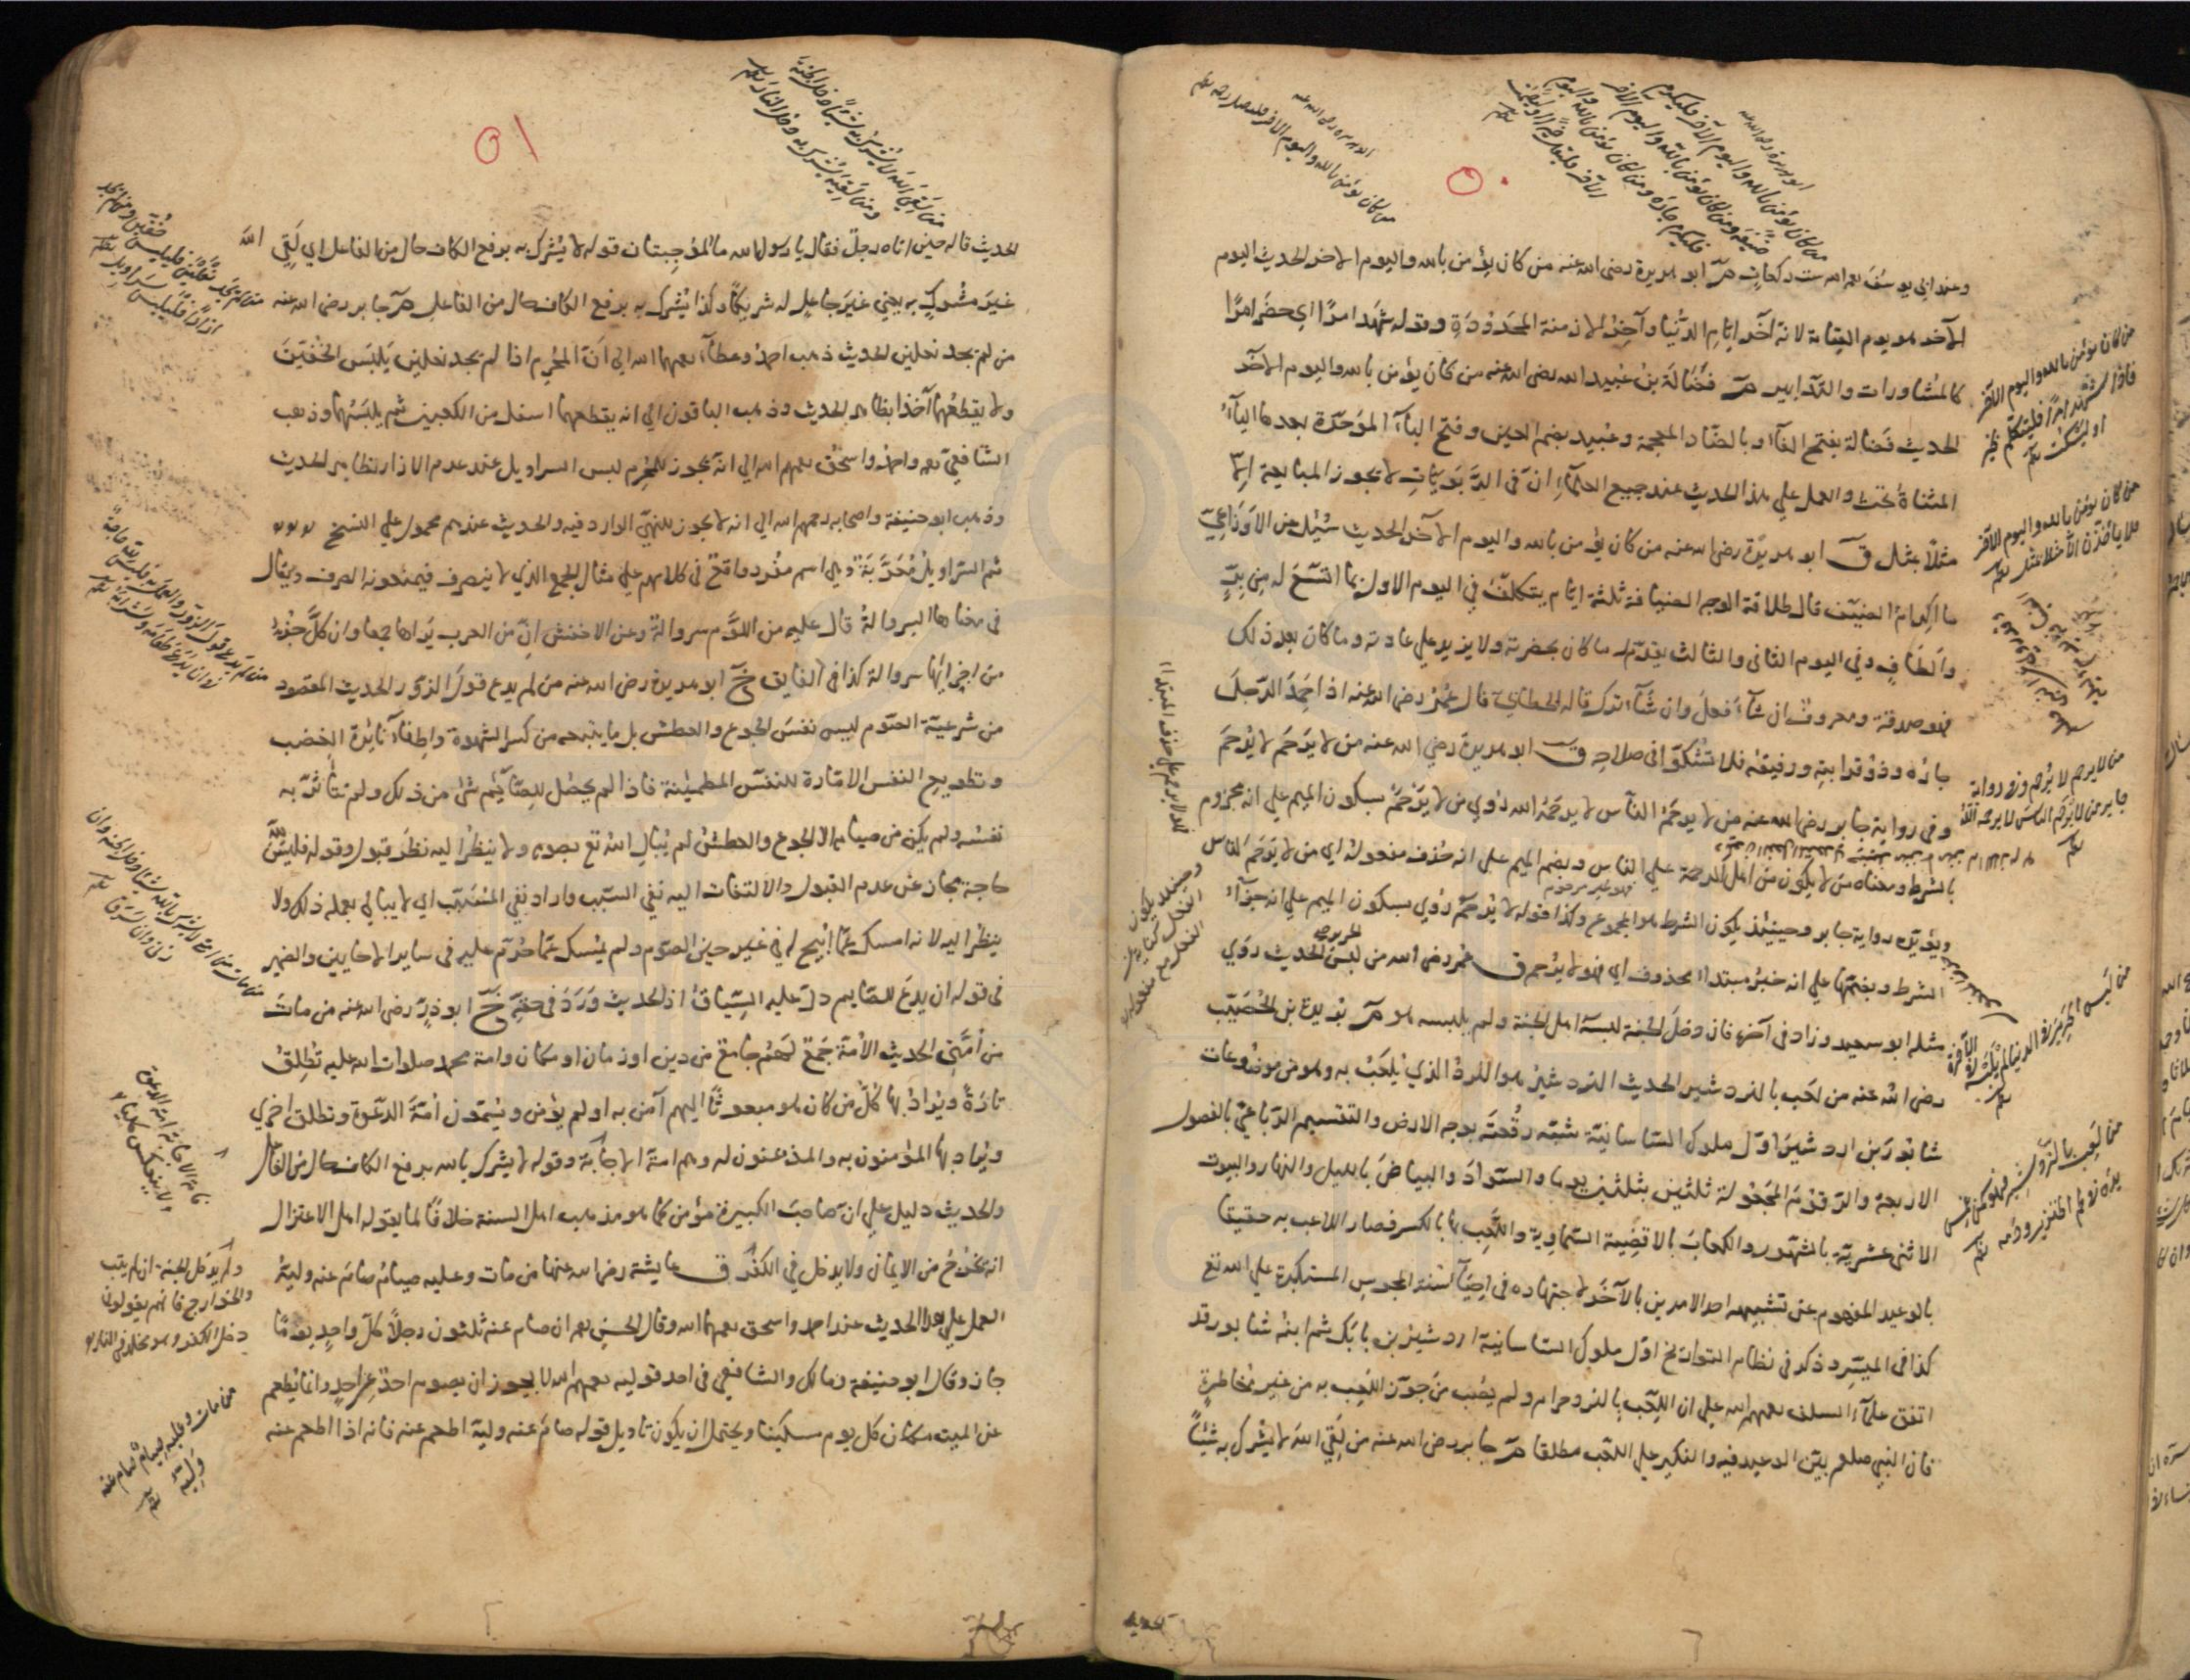 ٥٠
وعند ابي يوسف رحمه الله ست ركعات م ابو هريرة رضى الله عنه من كان يؤمن بالله واليوم الاخر الحديث اليوم
الآخر هو يوم القيامة لانه آخر ايام الدنيا وآخر الازمنة المحدودة وقوله شهد امرًا اي حضر امرًا
كالمشاورات والتدابير م فضالة بن عبيد الله رضى الله عنه من كان يؤمن بالله واليوم الآخر
الحديث فضالة بفتح الفاء وبالضاد المعجمة وعبيد بضم العين وفتح الباء الموحدة بعدها الياء
المثناة تحت والعمل علي هذا الحديث عند جميع العلماء ان في الربويات لا يجوز المبايعة الا
مثلا بمثل ق ابو هريرة رضى الله عنه من كان يؤمن بالله واليوم الآخر الحديث سئل عن الاوزاعي
ما اكرام الضيف قال طلاقة الوجه الضيافة ثلثة ايام يتكلف في اليوم الاول بما اتسع له من بر
والطاف وفي اليوم الثاني والثالث يقدم ما كان بحضرته ولا يزيد علي عادته وما كان بعد ذلك
فهو صدقة ومعروف ان شاء فعل وان شاء ترك قاله الخطابي قال عمر رضى الله عنه اذا حمد الرجل
جاره وذو قرابته ورفيقه فلا تشكوا في صلاحه ق ابو هريرة رضي الله عنه من لا يرحم لا يرحم
وفي رواية جابر رضى الله عنه من لا يرحم الناس لا يرحمه الله رُوي من لا يرحم بسكون الميم علي انه مجزوم
بالشرط ومعناه من لا يكون من اهل الرحمة علي الناس وبضم الميم علي انه حذف مفعوله اي من لا يرحم الناس
ويؤيده رواية جابر وحينئذ يكون الشرط هو المجموع وكذا قوله لا يرحم رُوي بسكون الميم علي انه جزاء
الشرط وبضمها علي انه خبر مبتداء محذوف اي فهو لا يرحم ق عمر رضى الله من لبس الحرير الحديث روي
مثله ابو سعيد وزاد في آخره فان دخل الجنة لبسه اهل الجنة ولم يلبسه هو م بريدة بن الحصيب
رضى الله عنه من لعب بالنردشير الحديث النردشير هو النرد الذي يلعب به وهو من موضوعات
شابور بن اردشير اول ملوك الساسانية شبه رقعته بوجه الارض والتقسيم الرباعي بالفصول
الاربعة والرقوم المجعولة ثلثين بثلثين يوما والسواد والبياض بالليل والنهار والبيوت
الاثنى عشرية بالشهور والكعاب بالاقضية السماوية واللعب بها بالكسر فصار اللاعب به حقيقا
بالوعيد المفهوم عن تشبيهه احد الامرين بالآخر لاجتهاده في احياء سنة المجوس المستكبرة علي الله تع
كذا في الميسر وذكر في نظام التواريخ اول ملوك الساسانية اردشير بن بابك ثم ابنه شابور وقد
اتفق علماء السلف رحمهم الله علي ان اللعب بالنرد حرام ولم يصب من جوز اللعب به من غير مخاطرة
فان النبي صلعم بين الوعيد فيه والنكير علي اللعب مطلقا م جابر رضى الله عنه من لقي الله لا يشرك به شيئًا
من كان يؤمن بالله واليوم الآخر
من كان يؤمن بالله واليوم الآخر
من لا يرحم لا يرحم وفي رواية
جابر من لا يرحم الناس لا يرحمه الله
من لبس الحرير في الدنيا لم يلبسه في الآخرة
من لعب بالنردشير فهو كمن غمس
يده في لحم الخنزير ودمه
٥١
من لقي الله لا يشرك به شيئًا دخل الجنة
ومن لقيه يشرك به دخل النار
الحديث قاله حين اتاه رجل فقال يا رسول الله ما الموجبتان قوله لا يشرك به برفع الكاف حال من الفاعل اي لقي الله
غير مشرك به يعني غير جاعل له شريكًا وكذا يشرك به برفع الكاف حال من الفاعل م جابر رضى الله عنه
من لم يجد نعلين الحديث ذهب احمد وعطاء رحمهما الله الي ان المحرم اذا لم يجد نعلين يلبس الخفين
ولا يقطعهما آخذا بظاهر الحديث وذهب الباقون الي انه يقطعهما اسفل من الكعبين ثم يلبسهما وذهب
الشافعي رحمه واحمد واسحق رحمهم الله الي انه يجوز للمحرم لبس السراويل عند عدم الازار لظاهر الحديث
وذهب ابو حنيفة واصحابه رحمهم الله الي انه لا يجوز للنهي الوارد فيه والحديث عندهم محمول علي النسخ
ثم السراويل معربة وهي اسم مفرد واقع في كلامهم علي مثال الجمع الذي لا ينصرف فيمنعونه الصرف ويقال
في معناها السروالة قال عليه من اللؤم سروالة وعن الاخفش ان من العرب يراها جمعا وان كل جزء
من اجزائها سروالة كذا في الفايق خ ابو هريرة رضى الله عنه من لم يدع قول الزور الحديث المقصود
من شرعية الصوم ليس نفس الجوع والعطش بل ما يتبعه من كسر الشهوة واطفاء نائرة الغضب
وتطويع النفس الامارة للنفس المطمئنة فاذا لم يحصل للصائم شئ من ذلك ولم تتأثر به
نفسه ولم يكن من صيامه الا الجوع والعطش لم يبال الله تع بصومه ولا ينظر اليه نظر قبول وقوله فليس لله
حاجة مجاز عن عدم القبول والالتفات اليه نفي السبب واراد نفي المسبب اي لا يبالي بعمله ذلك ولا
ينظر اليه لانه امسك عما ابيح له في غير حين الصوم ولم يمسك عما حرم عليه في ساير الاحايين والضمير
في قوله ان يدع للصايم دل عليه السياق اذ الحديث ورد في حقه خ ابو ذر رضى الله عنه من مات
من امتي الحديث الامة جمع لهم جامع من دين او زمان او مكان وامة محمد صلوات الله عليه تطلق
تارة ويراد بها كل من كان هو مبعوثًا اليهم آمن به او لم يؤمن ويسمون امة الدعوة وتطلق اخري
ويراد بها المؤمنون به والمذعنون له وهم امة الاجابة وقوله لا يشرك بالله برفع الكاف حال من الفاعل
والحديث دليل علي ان صاحب الكبيرة مؤمن كما هو مذهب اهل السنة خلافًا لما يقوله اهل الاعتزال
انه يخرج من الايمان ولا يدخل في الكفر ق عايشة رضى الله عنها من مات وعليه صيام صام عنه وليه
العمل علي هذا الحديث عند احمد واسحق رحمهما الله وقال الحسن رحمه ان صام عنه ثلثون رجلًا كل واحد يومًا
جاز وقال ابو حنيفة ومالك والشافعي في احد قوليه رحمهم الله لا يجوز ان يصوم احد عن احد وانما يطعم
عن الميت مكان كل يوم مسكينا ويحتمل ان يكون تاويل قوله صام عنه وليه اطعم عنه فانه اذا اطعم عنه
من مات وعليه صيام صام عنه
وليه